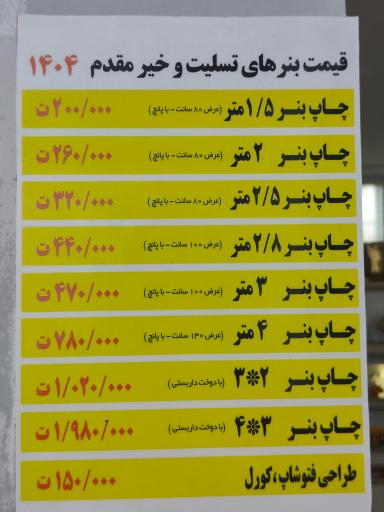 قیمت بنرهای تسلیت و خیر مقدم ۱۴۰۴
چاپ بنر ۱/۵ متر (عرض ۸۰ سانت - با پانچ) ۲۰۰/۰۰۰ ت
چاپ بنر ۲ متر (عرض ۸۰ سانت - با پانچ) ۲۶۰/۰۰۰ ت
چاپ بنر ۲/۵ متر (عرض ۸۰ سانت - با پانچ) ۳۲۰/۰۰۰ ت
چاپ بنر ۲/۸ متر (عرض ۱۰۰ سانت - با پانچ) ۴۴۰/۰۰۰ ت
چاپ بنر ۳ متر (عرض ۱۰۰ سانت - با پانچ) ۴۷۰/۰۰۰ ت
چاپ بنر ۴ متر (عرض ۱۳۰ سانت - با پانچ) ۷۸۰/۰۰۰ ت
چاپ بنر ۲*۳ (با دوخت داربستی) ۱/۰۲۰/۰۰۰ ت
چاپ بنر ۳*۴ (با دوخت داربستی) ۱/۹۸۰/۰۰۰ ت
طراحی فتوشاپ، کورل ۱۵۰/۰۰۰ ت